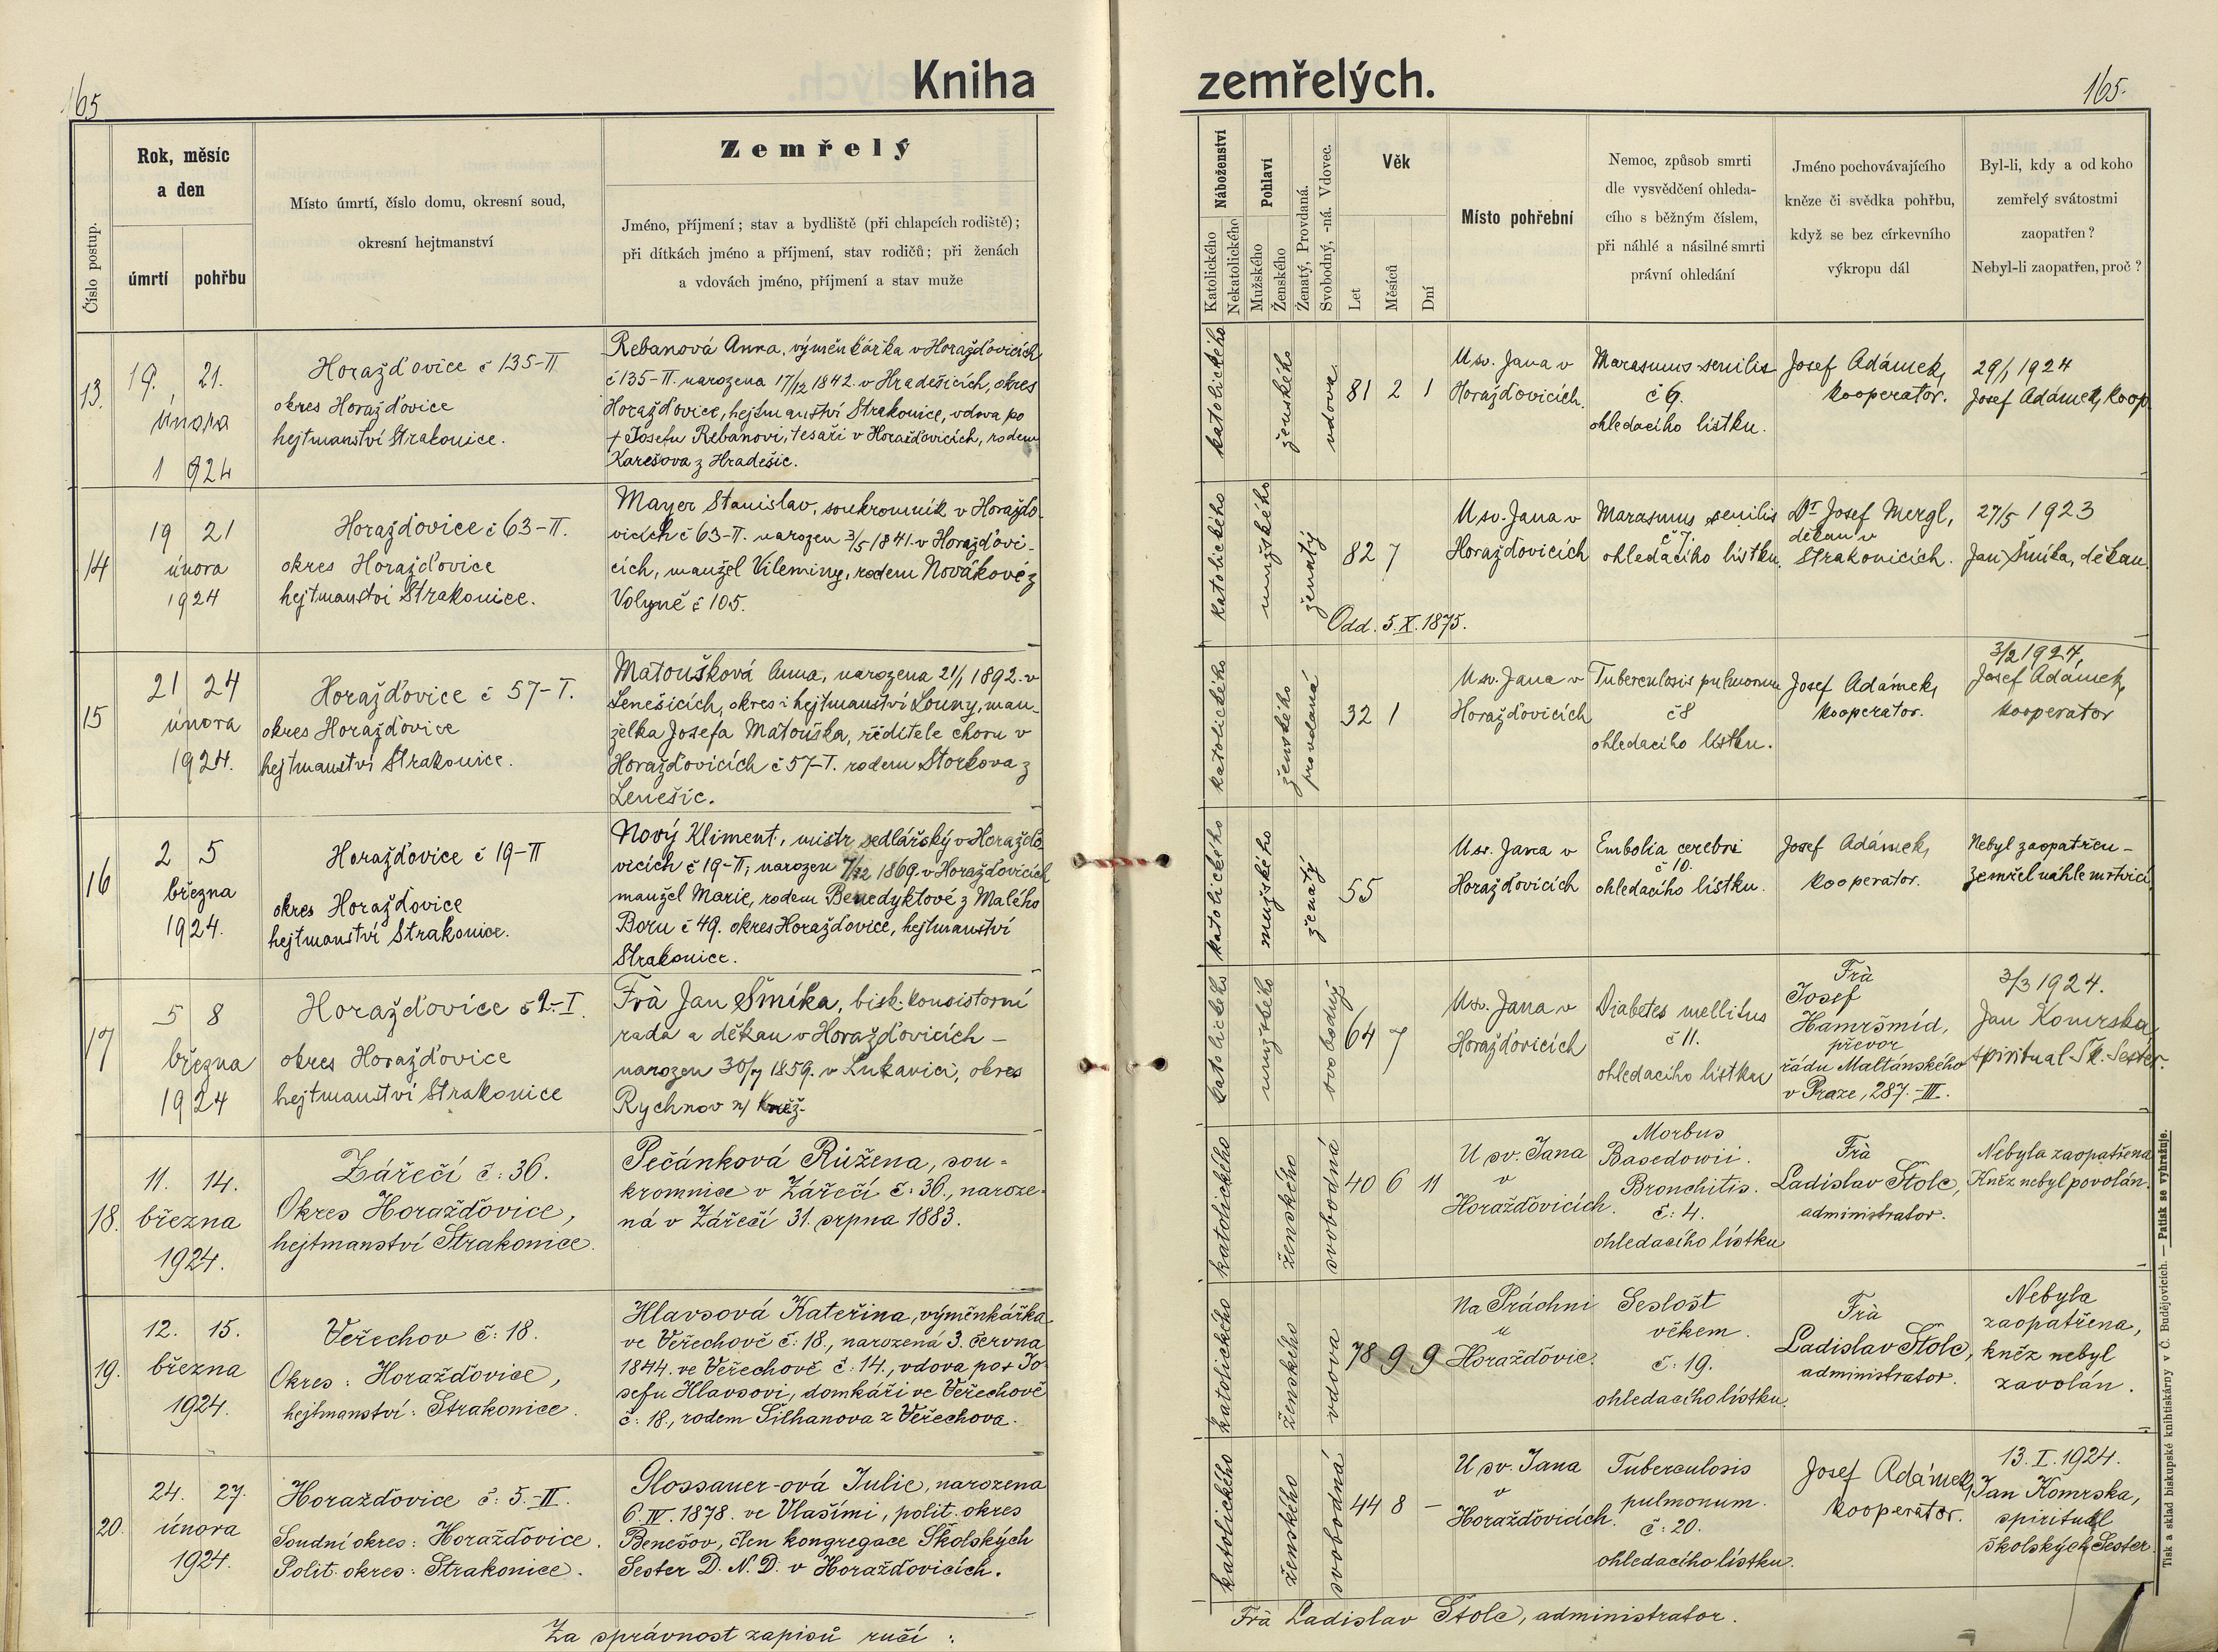 Kniha
zemřelých.
165
165.
Číslo postup.
Rok, měsíc
a den
úmrtí
pohřbu
Místo úmrtí, číslo domu, okresní soud,
okresní hejtmanství
Zemřelý
Jméno, příjmení; stav a bydliště (při chlapcích rodiště);
při dítkách jméno a příjmení, stav rodičů; při ženách
a vdovách jméno, příjmení a stav muže
Náboženství
Katolického
Nekatolického
Pohlaví
Mužského
Ženského
Ženatý, Provdaná.
Svobodný, -ná. Vdovec.
Věk
Let
Měsíců
Dní
Místo pohřební
Nemoc, způsob smrti
dle vysvědčení ohleda-
cího s běžným číslem,
při náhlé a násilné smrti
právní ohledání
Jméno pochovávajícího
kněze či svědka pohřbu,
když se bez církevního
výkropu dál
Byl-li, kdy a od koho
zemřelý svátostmi
zaopatřen?
Nebyl-li zaopatřen, proč?
13.
19. 21.
února
1924
Horažďovice č 135-II
okres Horažďovice
hejtmanství Strakonice.
Rebanová Anna, výměnkářka v Horažďovicích
č 135-II. narozena 17/12 1842. v Hradešicích, okres
Horažďovice, hejtmanství Strakonice, vdova po
+ Josefu Rebanovi, tesaři v Horažďovicích, rodem
Karešova z Hradešic.
katolického
ženského
vdova
81 2 1
U sv. Jana v
Horažďovicích.
Marasmus senilis
č 6.
ohledacího lístku.
Josef Adámek,
kooperator.
29/1 1924
Josef Adámek, koop
14
19 21
února
1924
Horažďovice č 63-II.
okres Horažďovice
hejtmanství Strakonice.
Mayer Stanislav, soukromník v Horažďo-
vicích č 63-II. narozen 3/5 1841. v Horažďovi-
cích, manžel Vileminy, rodem Novákové z
Volyně č 105.
katolického
mužského
ženatý
82 7
Odd. 5. X. 1875.
U sv. Jana v
Horažďovicích
Marasmus senilis
č 7.
ohledacího lístku.
Dr Josef Mergl,
děkan v
Strakonicích.
27/5 1923
Jan Šmíka, děkan
15
21 24
února
1924.
Horažďovice č 57-I.
okres Horažďovice
hejtmanství Strakonice.
Matoušková Anna, narozena 21/1 1892. v
Lenešicích, okres i hejtmanství Louny, man-
želka Josefa Matouška, ředitele choru v
Horažďovicích č 57-I. rodem Štorkova z
Lenešic.
katolického
ženského
provdaná
32 1
U sv. Jana v
Horažďovicích
Tuberculosis pulmonum
č 8
ohledacího lístku.
Josef Adámek,
kooperator.
3/2 1924,
Josef Adámek,
kooperator
16
2 5
března
1924.
Horažďovice č 19-II
okres Horažďovice
hejtmanství Strakonice.
Nový Kliment, mistr sedlářský v Horažďo
vicích č 19-II, narozen 7/12 1869. v Horažďovicích
manžel Marie, rodem Benedyktové z Malého
Boru č 49. okres Horažďovice, hejtmanství
Strakonice.
katolického
mužského
ženatý
55
U sv. Jana v
Horažďovicích
Embolia cerebri
č 10.
ohledacího lístku.
Josef Adámek,
kooperator.
Nebyl zaopatřen -
Zemřel náhle mrtvicí
17
5 8
března
1924
Horažďovice č 2-I.
okres Horažďovice
hejtmanství Strakonice
Frà Jan Šmíka, bisk. konsistorní
rada a děkan v Horažďovicích -
narozen 30/7 1859. v Lukavici, okres
Rychnov n/ Kněž.
katolického
mužského
svobodný
64 7
U sv. Jana v
Horažďovicích
Diabetes mellitus
č 11.
ohledacího lístku
Frà
Josef
Hamršmíd,
převor
řádu Maltánského
v Praze, 287.-III.
3/3 1924.
Jan Komrska
spiritual Šk. Sester.
18.
11. 14.
března
1924.
Zářečí č: 36.
Okres Horažďovice,
hejtmanství Strakonice.
Pečánková Růžena, sou-
kromnice v Zářečí č: 36., naroze-
ná v Zářečí 31. srpna 1883.
katolického
ženského
svobodná
40 6 11
U sv. Jana
v
Horažďovicích.
Morbus
Basedowii.
Bronchitis.
č: 4.
ohledacího lístku
Frà
Ladislav Štolc,
administrator.
Nebyla zaopatřena
Kněz nebyl povolán.
19.
12. 15.
března
1924.
Veřechov č: 18.
Okres: Horažďovice,
hejtmanství: Strakonice.
Hlavsová Kateřina, výměnkářka
ve Veřechově č: 18., narozená 3. června
1844. ve Veřechově č: 14., vdova po + Jo-
sefu Hlavsovi, domkáři ve Veřechově
č: 18., rodem Šilhanova z Veřechova.
katolického
ženského
vdova
78 9 9
Na Práchni
u
Horažďovic.
Sešlost
věkem.
č: 19.
ohledacího lístku.
Frà
Ladislav Štolc,
administrator.
Nebyla
zaopatřena,
kněz nebyl
zavolán.
20.
24. 27.
února
1924.
Horažďovice č: 5.-II.
Soudní okres: Horažďovice.
Polit. okres: Strakonice.
Glossauer-ová Julie, narozena
6. IV. 1878. ve Vlašimi, polit. okres
Benešov, člen kongregace Školských
Sester D. N. D. v Horažďovicích.
katolického
ženského
svobodná
44 8 -
U sv. Jana
v
Horažďovicích.
Tuberculosis
pulmonum.
č: 20.
ohledacího lístku.
Josef Adámek,
kooperator.
13. I. 1924.
Jan Komrska,
spirituál
školských Sester
Za správnost zapisů ručí:
Frà Ladislav Štolc, administrator.
Tisk a sklad biskupské knihtiskárny v Č. Budějovicích. — Patisk se vyhražuje.